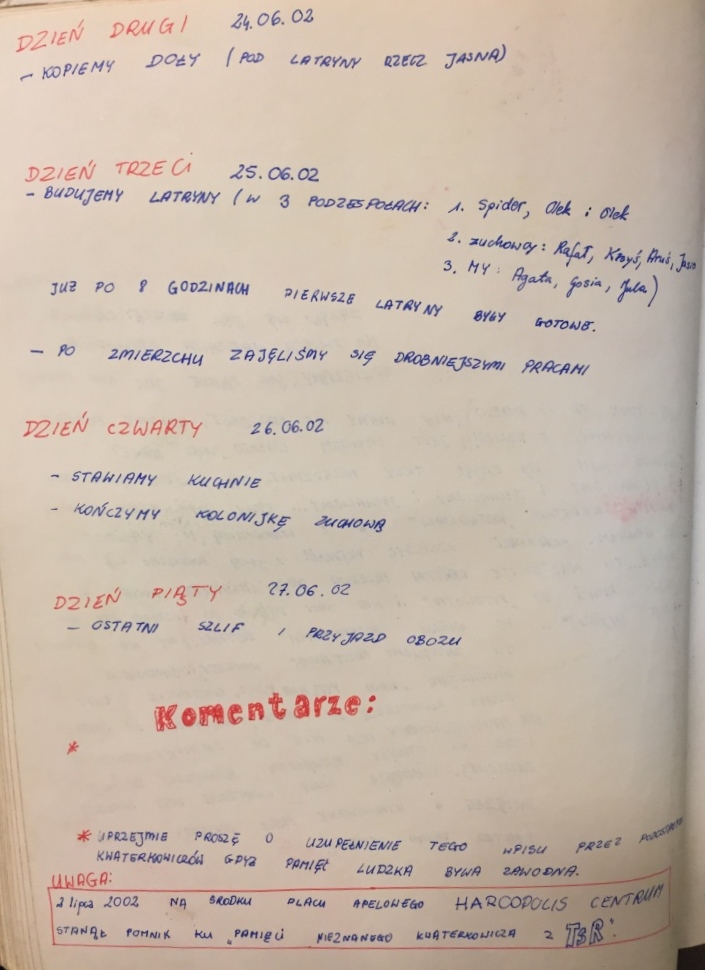 DZIEŃ DRUGI 24.06.02
- KOPIEMY DOŁY (POD LATRYNY RZECZ JASNA)
DZIEŃ TRZECI 25.06.02
- BUDUJEMY LATRYNY (W 3 PODZESPOŁACH: 1. Spider, Olek i Olek
2. zuchowcy: Rafał, Krzyś, Aruś, Jasio
3. MY: Agata, Gosia, Jula)
JUŻ PO 8 GODZINACH PIERWSZE LATRYNY BYŁY GOTOWE.
- PO ZMIERZCHU ZAJĘLIŚMY SIĘ DROBNIEJSZYMI PRACAMI
DZIEŃ CZWARTY 26.06.02
- STAWIAMY KUCHNIE
- KOŃCZYMY KOLONIJKĘ ZUCHOWĄ
DZIEŃ PIĄTY 27.06.02
- OSTATNI SZLIF I PRZYJAZD OBOZU
Komentarze:
*
* UPRZEJMIE PROSZĘ O UZUPEŁNIENIE TEGO WPISU PRZEZ POZOSTAŁYCH
KWATERKOWICZÓW GDYŻ PAMIĘĆ LUDZKA BYWA ZAWODNA.
UWAGA:
2 lipca 2002 NA ŚRODKU PLACU APELOWEGO HARCOPOLIS CENTRUM
STANĄŁ POMNIK KU "PAMIĘCI NIEZNANEGO KWATERKOWICZA Z TSR".